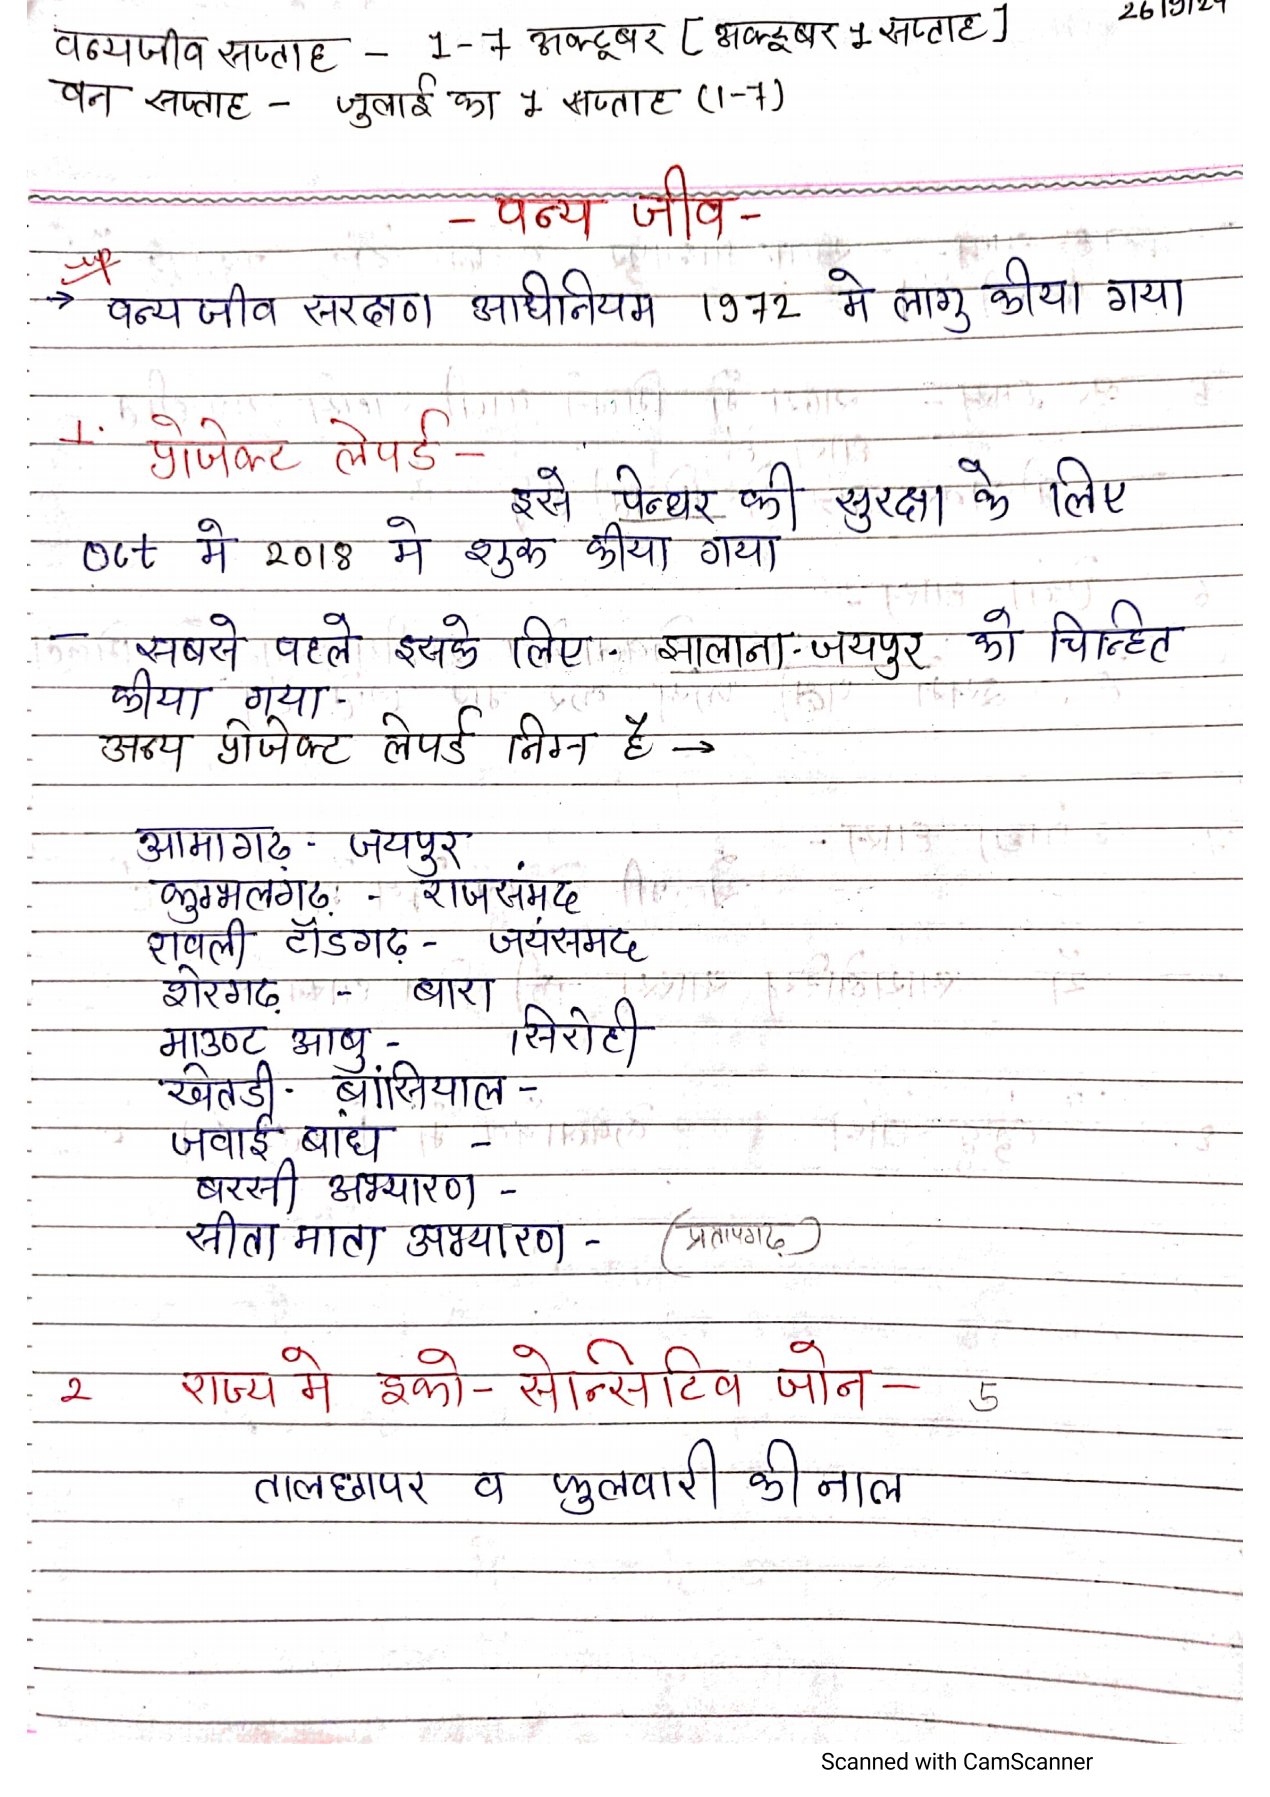 26/9/24
वन्यजीव सप्ताह - 1-7 अक्टूबर [अक्टूबर 1 सप्ताह]
वन सप्ताह - जुलाई का 1 सप्ताह (1-7)
- वन्य जीव -
→ वन्य जीव सरक्षण आधीनियम 1972 मे लागु कीया गया
1. प्रोजेक्ट लेपर्ड -
इसे पेन्थर की सुरक्षा के लिए
Oct मे 2018 मे शुरू कीया गया
- सबसे पहले इसके लिए - झालाना - जयपुर को चिन्हित
कीया गया -
अन्य प्रोजेक्ट लेपर्ड निम्न है →
आमागढ़ - जयपुर
कुम्भलगढ़ - राजसंमद
रावली टॉडगढ़ - जयंसमद
शेरगढ़ - बारा
माउण्ट आबु - सिरोही
खेतडी - बांसियाल -
जवाई बांध -
बस्सी अभ्यारण -
सीता माता अभ्यारण - (प्रतापगढ़)
2 राज्य मे इको - सेन्सिटिव जोन - 5
तालछापर व फुलवारी की नाल
Scanned with CamScanner